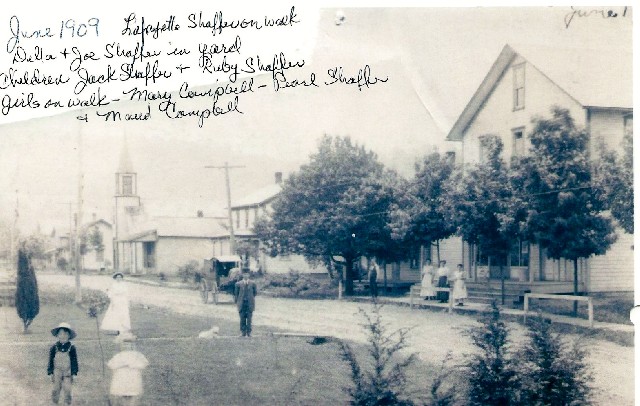 June 1909 Lafayette Shaffer on walk
Della + Joe Shaffer in yard
Children Jack Shaffer + Ruby Shaffer
Girls on walk - Mary Campbell - Pearl Shaffer
+ Maud Campbell
June 1